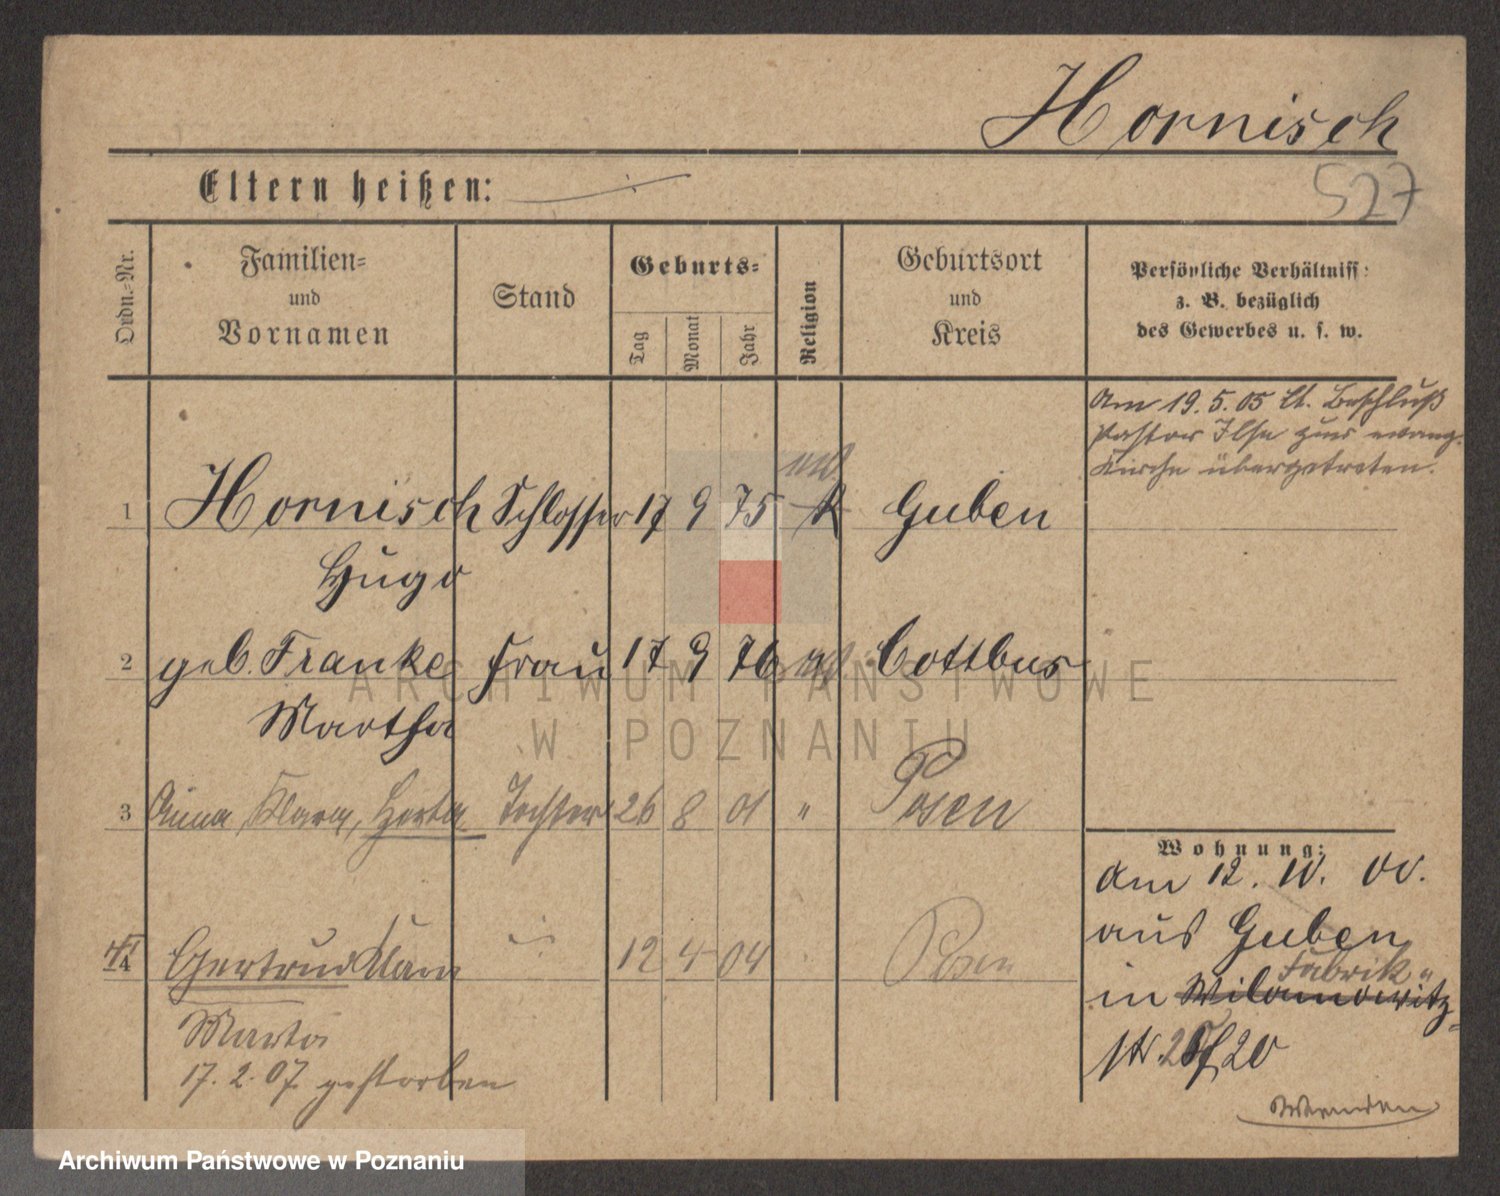 Hornisch
527
Eltern heißen:
Ordn.-Nr.
Familien-
und
Vornamen
Stand
Geburts-
Tag
Monat
Jahr
Religion
Geburtsort
und
Kreis
Persönliche Verhältniss:
z. B. bezüglich
des Gewerbes u. s. w.
Am 19.5.05 lt. Beschluß
Pastor Ilse zur evang.
Kirche übergetreten.
1 Hornisch Schlosser 17 9 75 k Guben
Hugo
2 geb. Franke Frau 17 9 76 Cottbus
Martha
3 Anna, Klara, Herta Tochter 26 8 01 " Posen
4 Gertrud Klara 12 4 04 Posen
Marta
17.2.07 gestorben
Wohnung:
Am 12. 10. 00.
aus Guben
Fabrik
in Wilamowitz-
str. 20
Wenden
ARCHIWUM PAŃSTWOWE
W POZNANIU
Archiwum Państwowe w Poznaniu